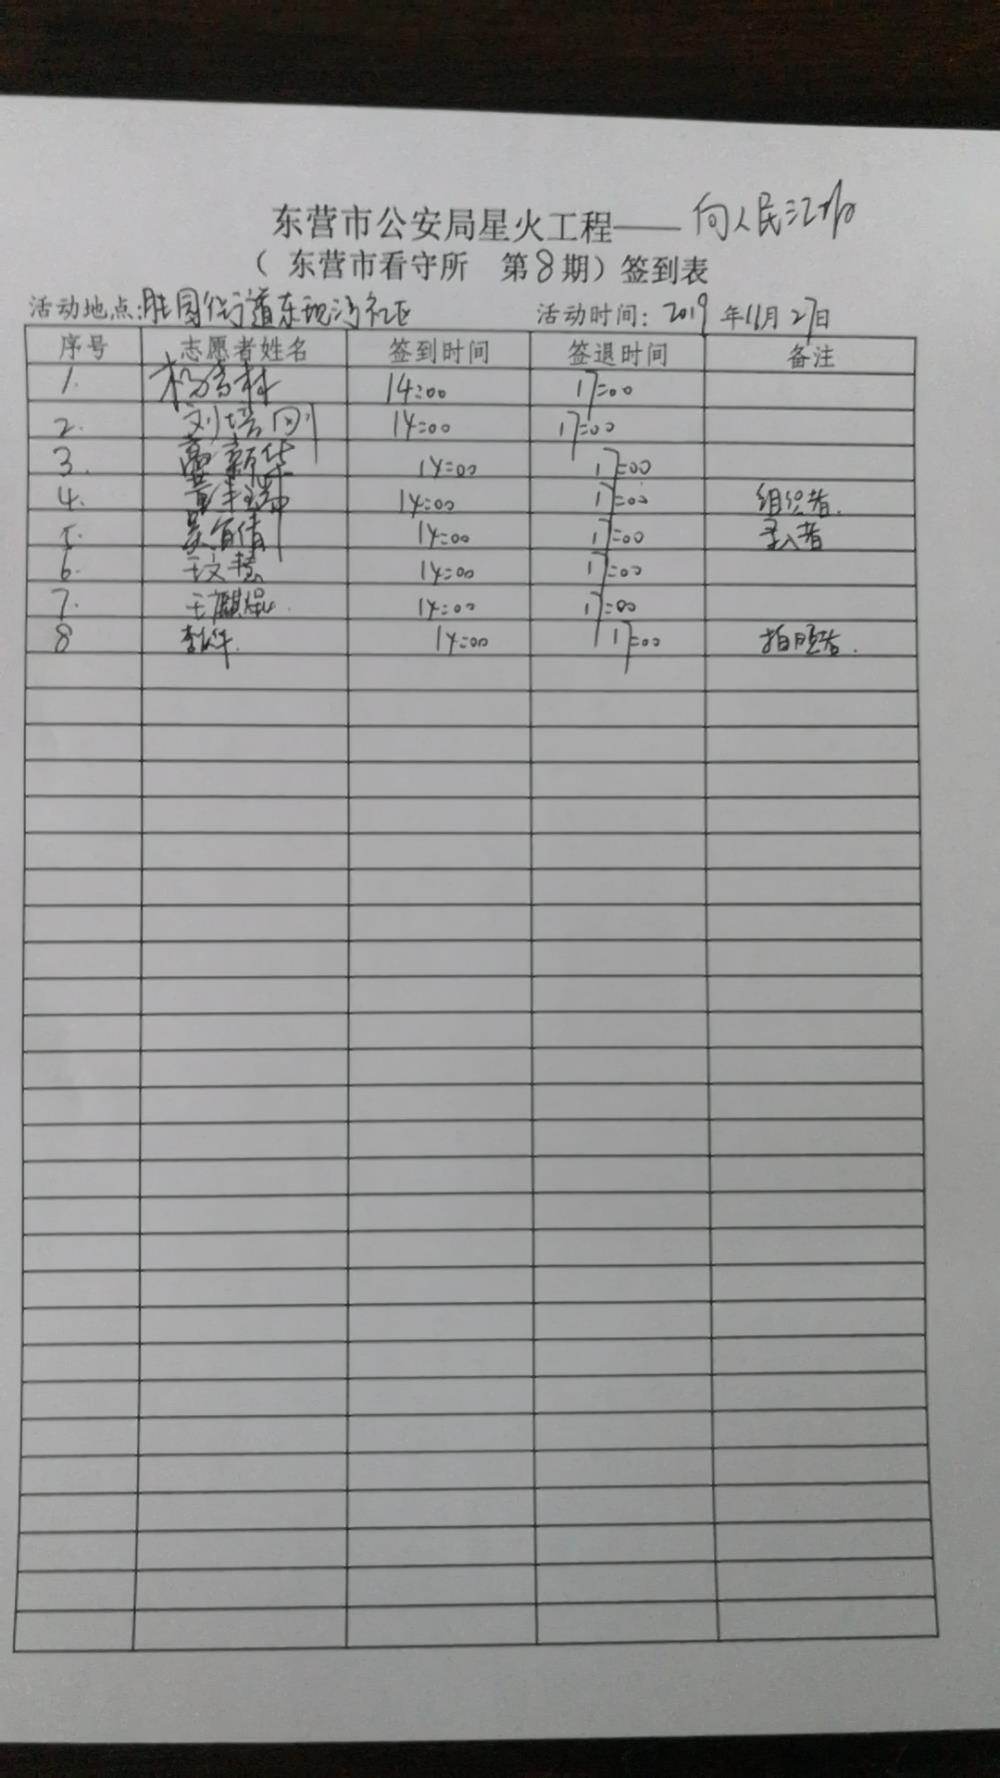 东营市公安局星火工程——向人民汇报
（东营市看守所 第8期）签到表
活动地点:胜园街道东现河社区 活动时间: 2019年11月27日
序号 志愿者姓名 签到时间 签退时间 备注
1. 14:00 17:00
2. 刘培刚 14:00 17:00
3. 新华 14:00 17:00
4. 14:00 17:00 组织者.
5. 吴倩 14:00 17:00 录入者
6. 王文慧 14:00 17:00
7. 王麒焜. 14:00 17:00
8 李 14:00 17:00 拍照者.